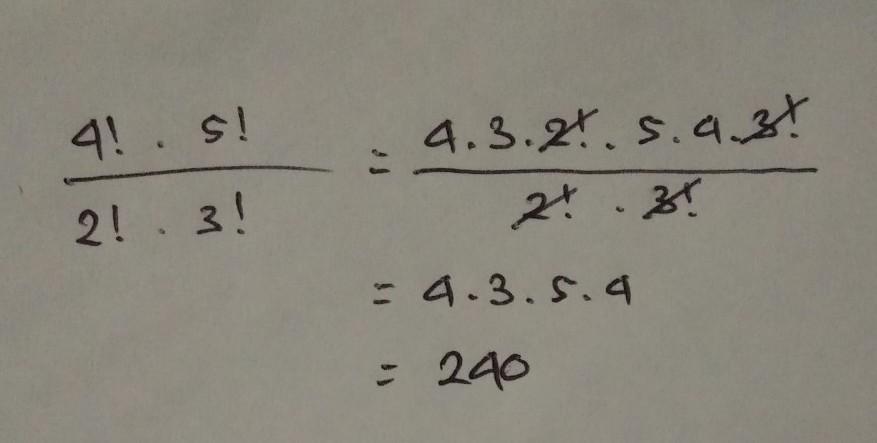 4! . 5! / 2! . 3! = 4.3.2!.5.4.3! / 2! . 3!
= 4.3.5.4
= 240